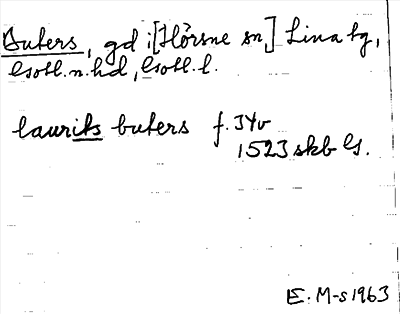 Buters, gd i [Hörsne sn,] Lina tg,
Gotl.n.hd, Gotl.l.
laurits buters f. 34v
1523 skb G.
E. M-s 1963